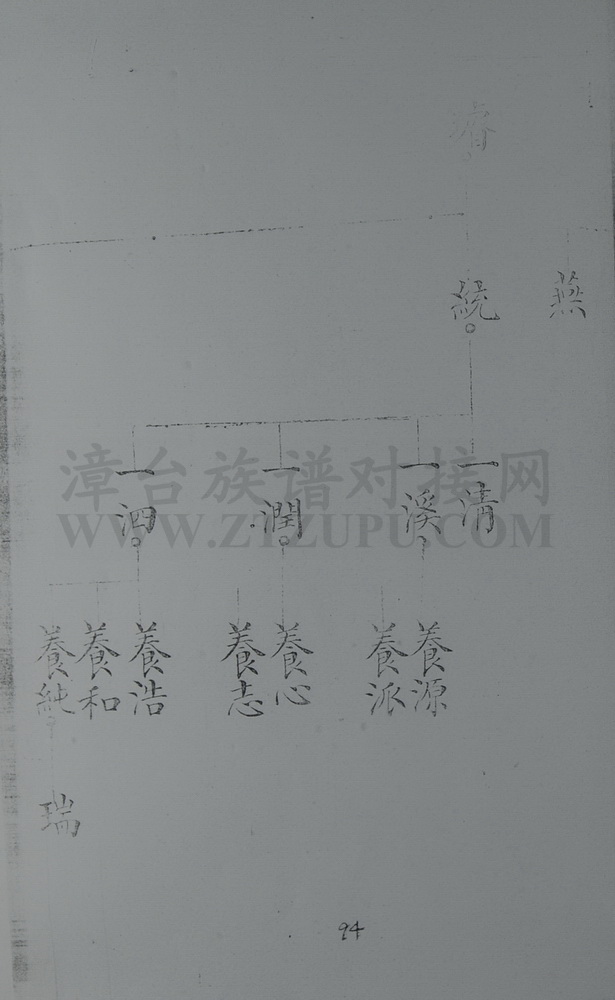 燕
統
一清
一溪
一潤
一泗
養源
養派
養心
養志
養浩
養和
養純
瑞
漳台族谱对接网
WWW.ZTZUPU.COM
94